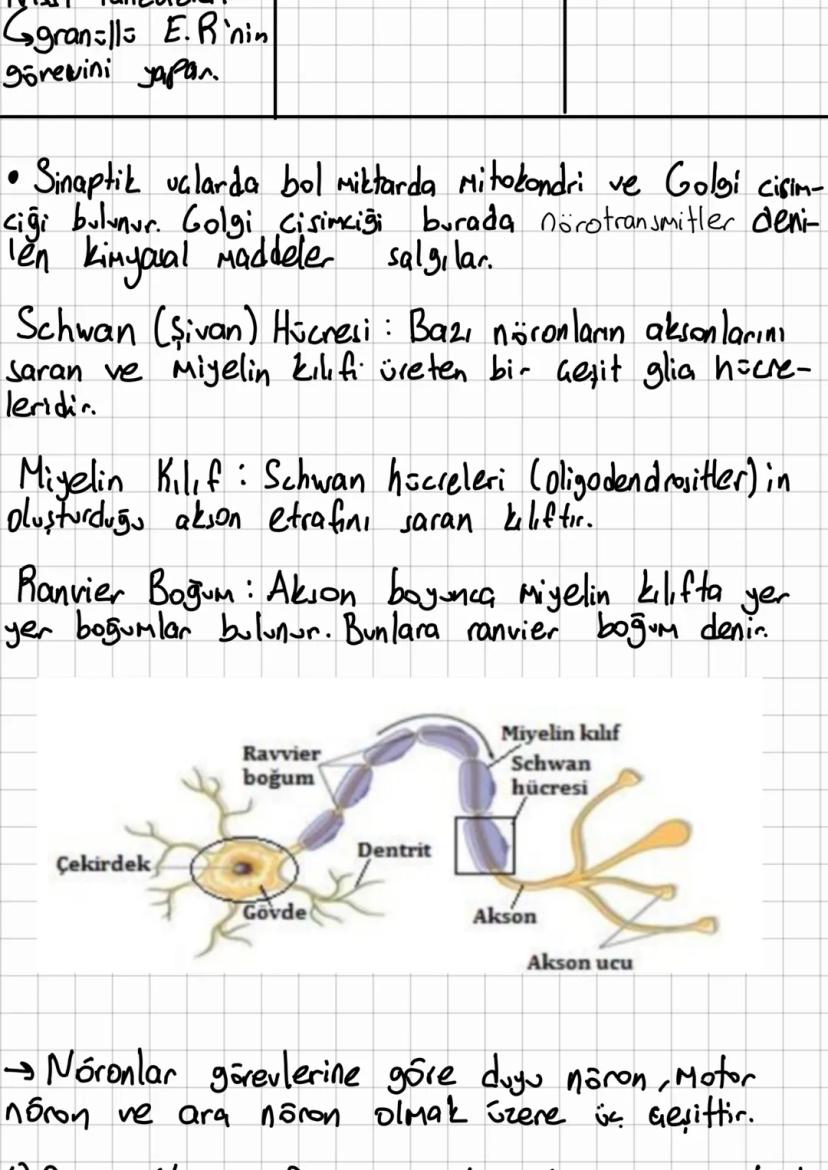 ↳granüllü E.R'nin
görevini yapar.
• Sinaptik uçlarda bol miktarda mitokondri ve Golgi cisim-
ciği bulunur. Golgi cisimciği burada nörotransmitler deni-
len kimyasal maddeler salgılar.
Schwan (Şivan) Hücresi : Bazı nöronların aksonlarını
saran ve miyelin kılıfı üreten bir çeşit glia hücre-
leridir.
Miyelin Kılıf : Schwan hücreleri (oligodendrositler)in
oluşturduğu akson etrafını saran kılıftır.
Ranvier Boğum : Akson boyunca miyelin kılıfta yer
yer boğumlar bulunur. Bunlara ranvier boğum denir.
Ravvier
boğum
Miyelin kılıf
Schwan
hücresi
Çekirdek
Dentrit
Gövde
Akson
Akson ucu
→ Nöronlar görevlerine göre duyu nöron, Motor
nöron ve ara nöron olmak üzere üç çeşittir.